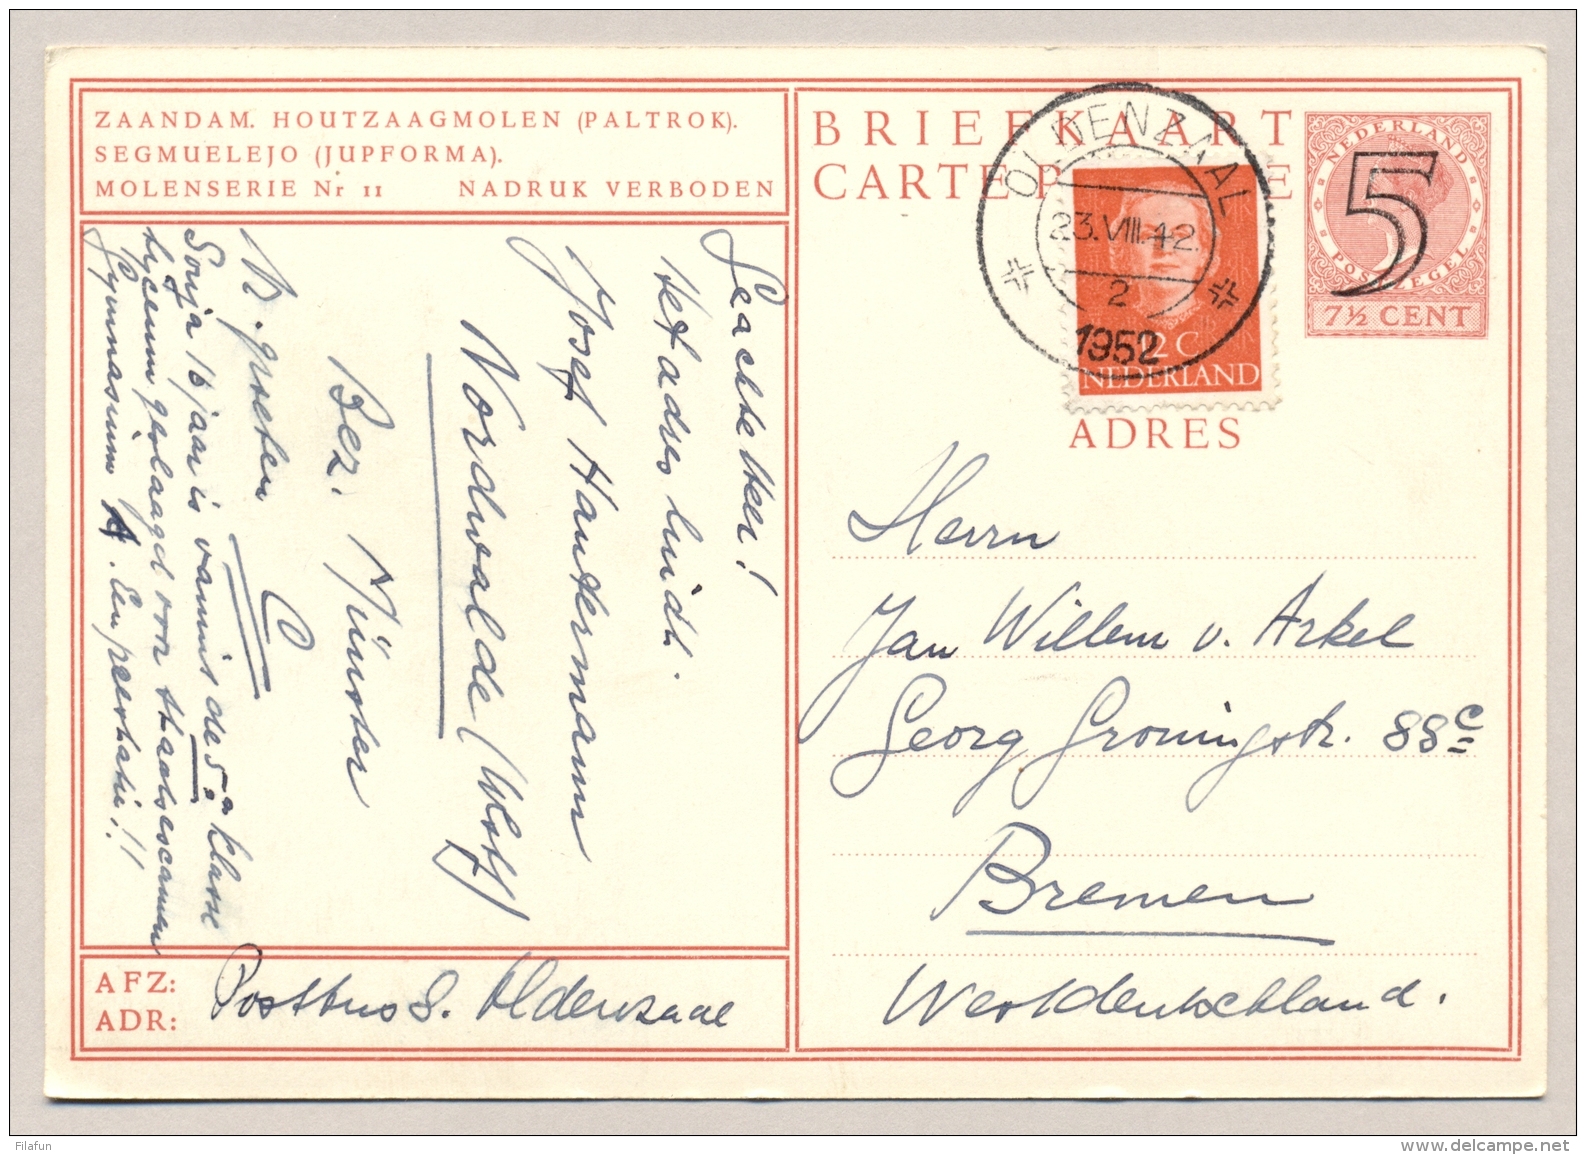 ZAANDAM. HOUTZAAGMOLEN (PALTROK).
SEGMUELEJO (JUPFORMA).
MOLENSERIE Nr 11 NADRUK VERBODEN
Geachte Heer!
Het adres luidt.
Josef Hantermann
Nordwalde (Westf)
Bez. Münster
M. groeten
C
Sonja 16 jaar is vannuit de 5e klasse
lyceum geslaagd voor staatsexamen
Gymnasium A. Een prestatie!!
AFZ:
ADR:
Postbus 8. Oldenzaal
BRIEFKAART
CARTE P E
OLDENZAAL
23.VIII.42.
2
1952
12 C
NEDERLAND
NEDERLAND
5
POSTZEGEL
7½ CENT
ADRES
Herrn
Jan Willem v. Arkel
Georg Groningstr. 88c
Bremen
Westdeutschland.
Filafun
delcampe.net